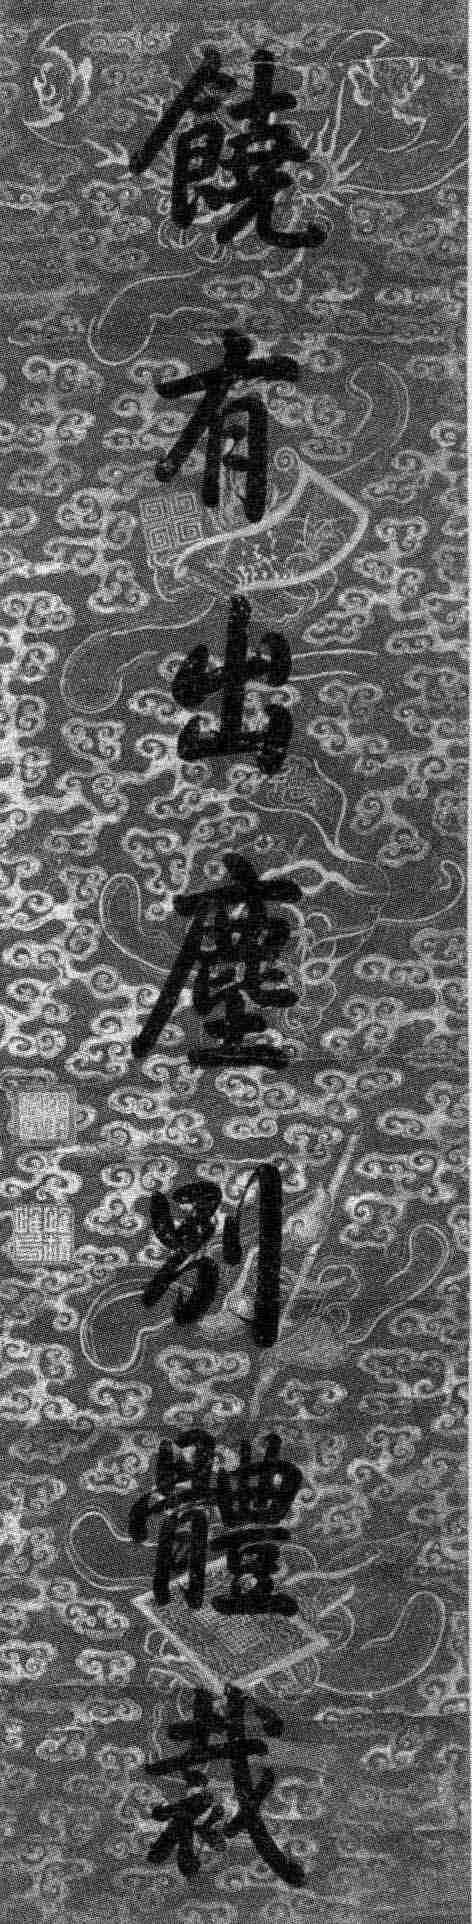 饒有出塵別體裁